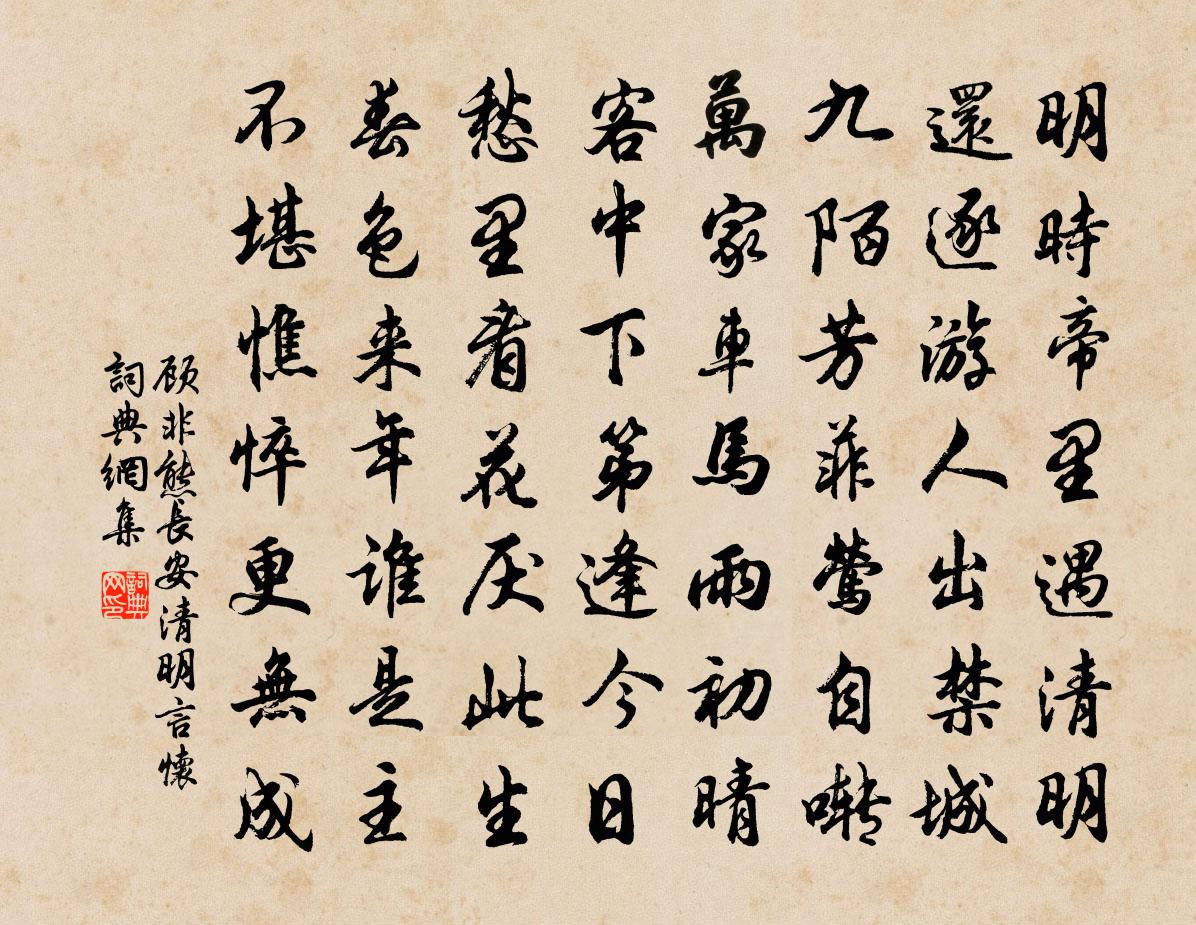 明時帝里遇清明
還逐游人出禁城
九陌芳菲鶯自囀
萬家車馬雨初晴
客中下第逢今日
愁里看花厌此生
春色来年誰是主
不堪憔悴更無成
顾非熊長安清明言懷
詞典網集
詞典网印